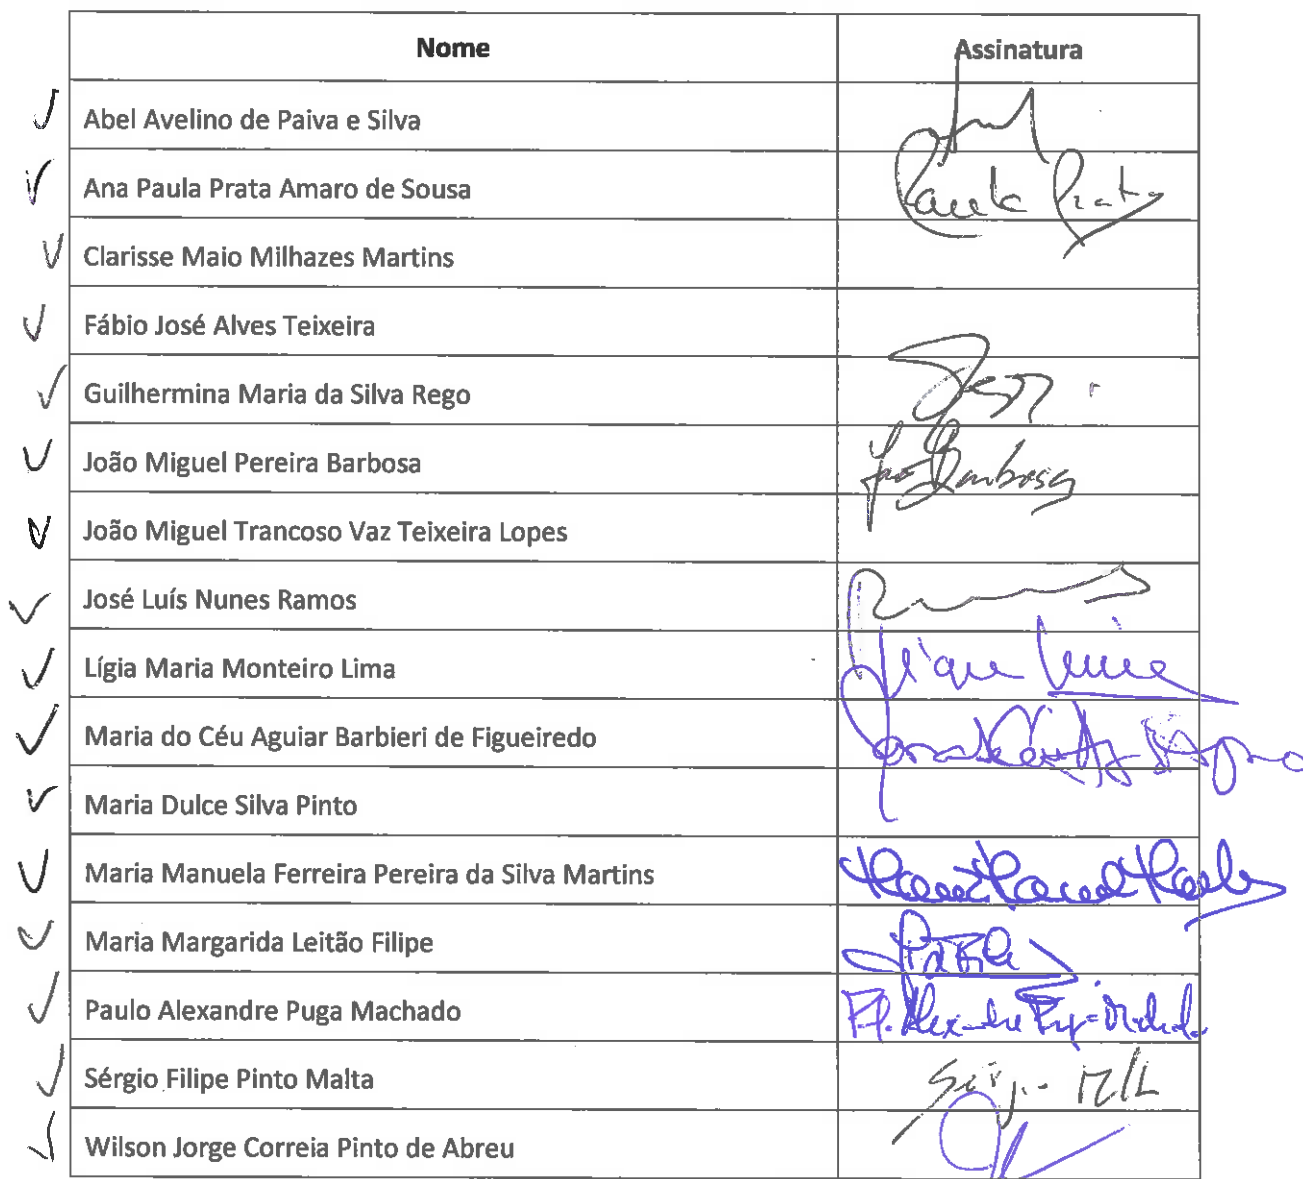 Nome Assinatura
Abel Avelino de Paiva e Silva
Ana Paula Prata Amaro de Sousa Paula Prata
Clarisse Maio Milhazes Martins
Fábio José Alves Teixeira
Guilhermina Maria da Silva Rego
João Miguel Pereira Barbosa João Barbosa
João Miguel Trancoso Vaz Teixeira Lopes
José Luís Nunes Ramos
Lígia Maria Monteiro Lima Lígia Lima
Maria do Céu Aguiar Barbieri de Figueiredo
Maria Dulce Silva Pinto
Maria Manuela Ferreira Pereira da Silva Martins
Maria Margarida Leitão Filipe
Paulo Alexandre Puga Machado
Sérgio Filipe Pinto Malta Sérgio
Wilson Jorge Correia Pinto de Abreu